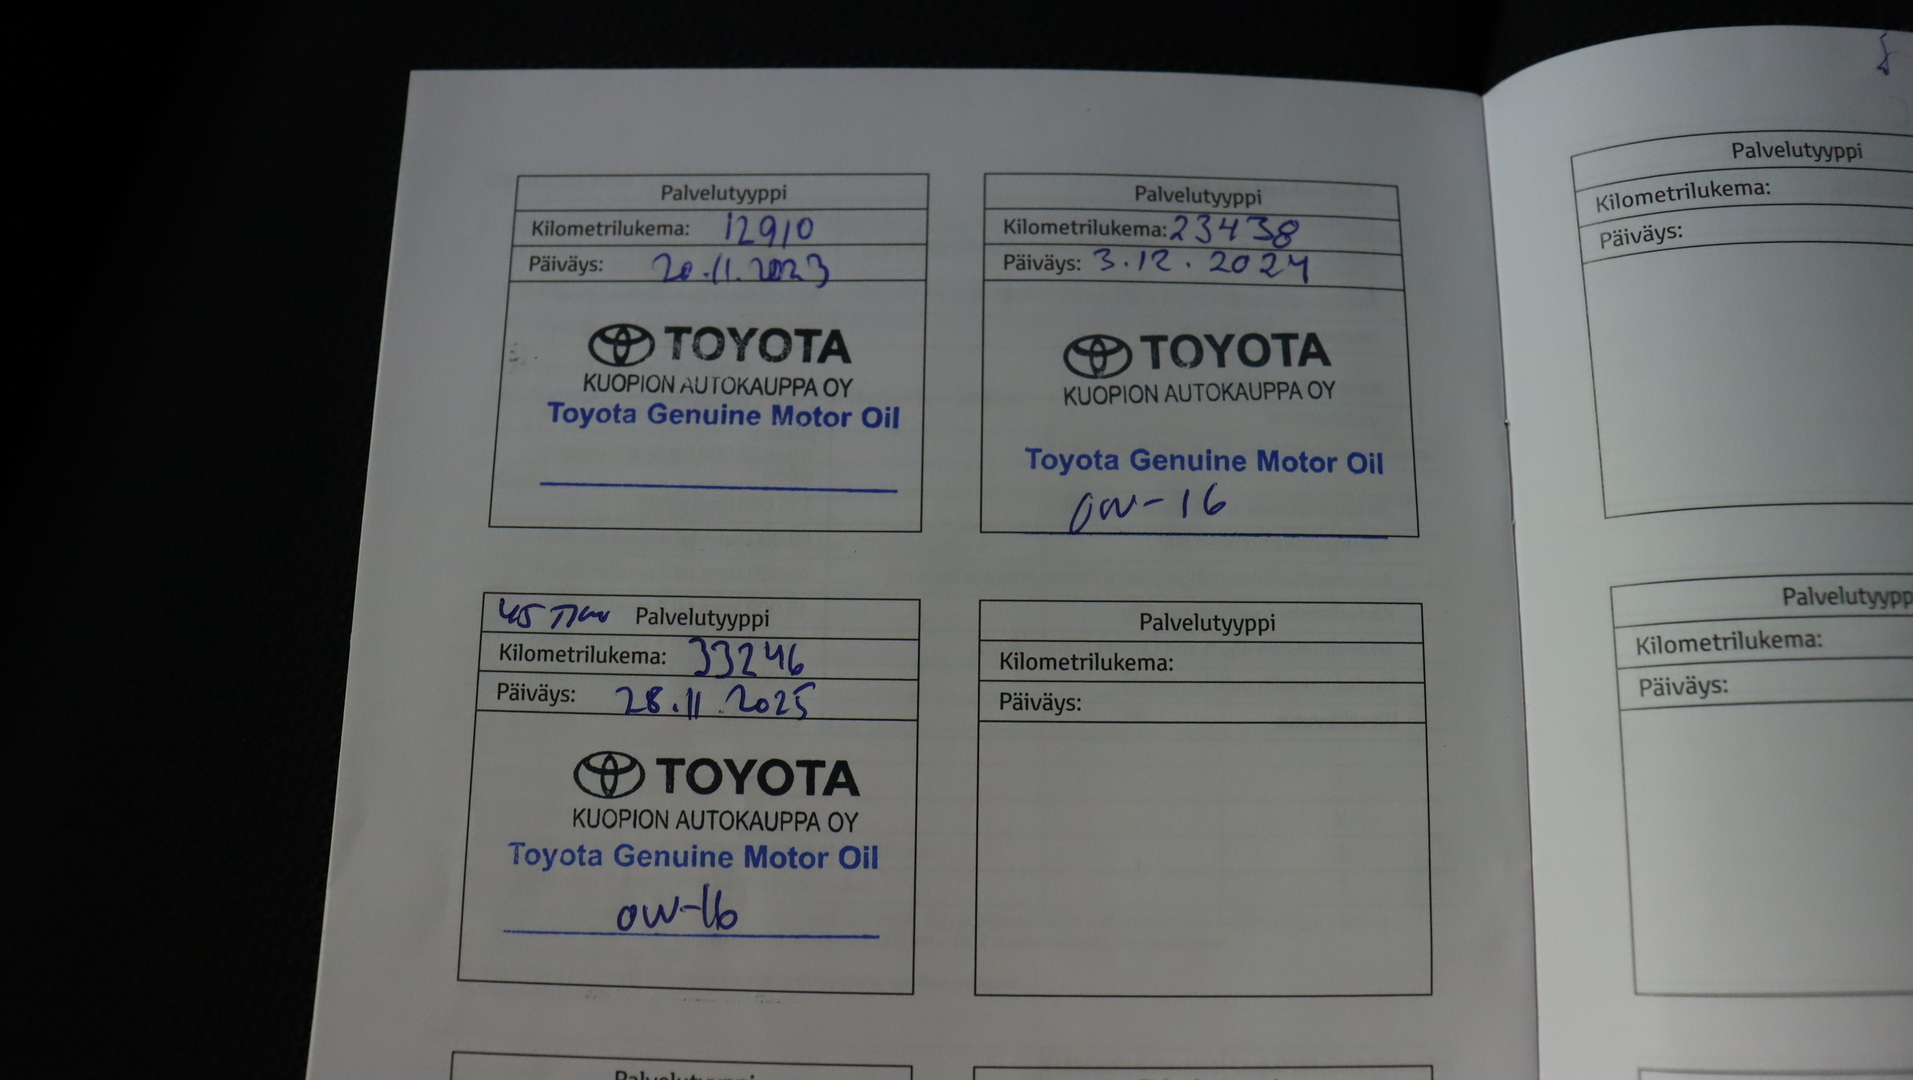 Palvelutyyppi
Kilometrilukema: 12910
Päiväys: 20.11.2023
TOYOTA
KUOPION AUTOKAUPPA OY
Toyota Genuine Motor Oil
Palvelutyyppi
Kilometrilukema: 23438
Päiväys: 3.12.2024
TOYOTA
KUOPION AUTOKAUPPA OY
Toyota Genuine Motor Oil
0W-16
45 Tkm Palvelutyyppi
Kilometrilukema: 33246
Päiväys: 28.11.2025
TOYOTA
KUOPION AUTOKAUPPA OY
Toyota Genuine Motor Oil
0W-16
Palvelutyyppi
Kilometrilukema:
Päiväys:
Palvelutyyppi
Palvelutyyppi
Kilometrilukema:
Päiväys:
Palvelutyypp
Kilometrilukema:
Päiväys: